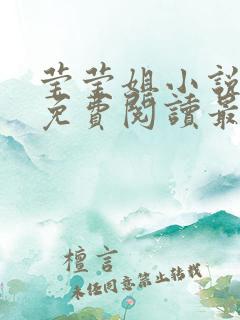 莹莹姐小說
免費閱讀最
檀言
未经同意禁止转载